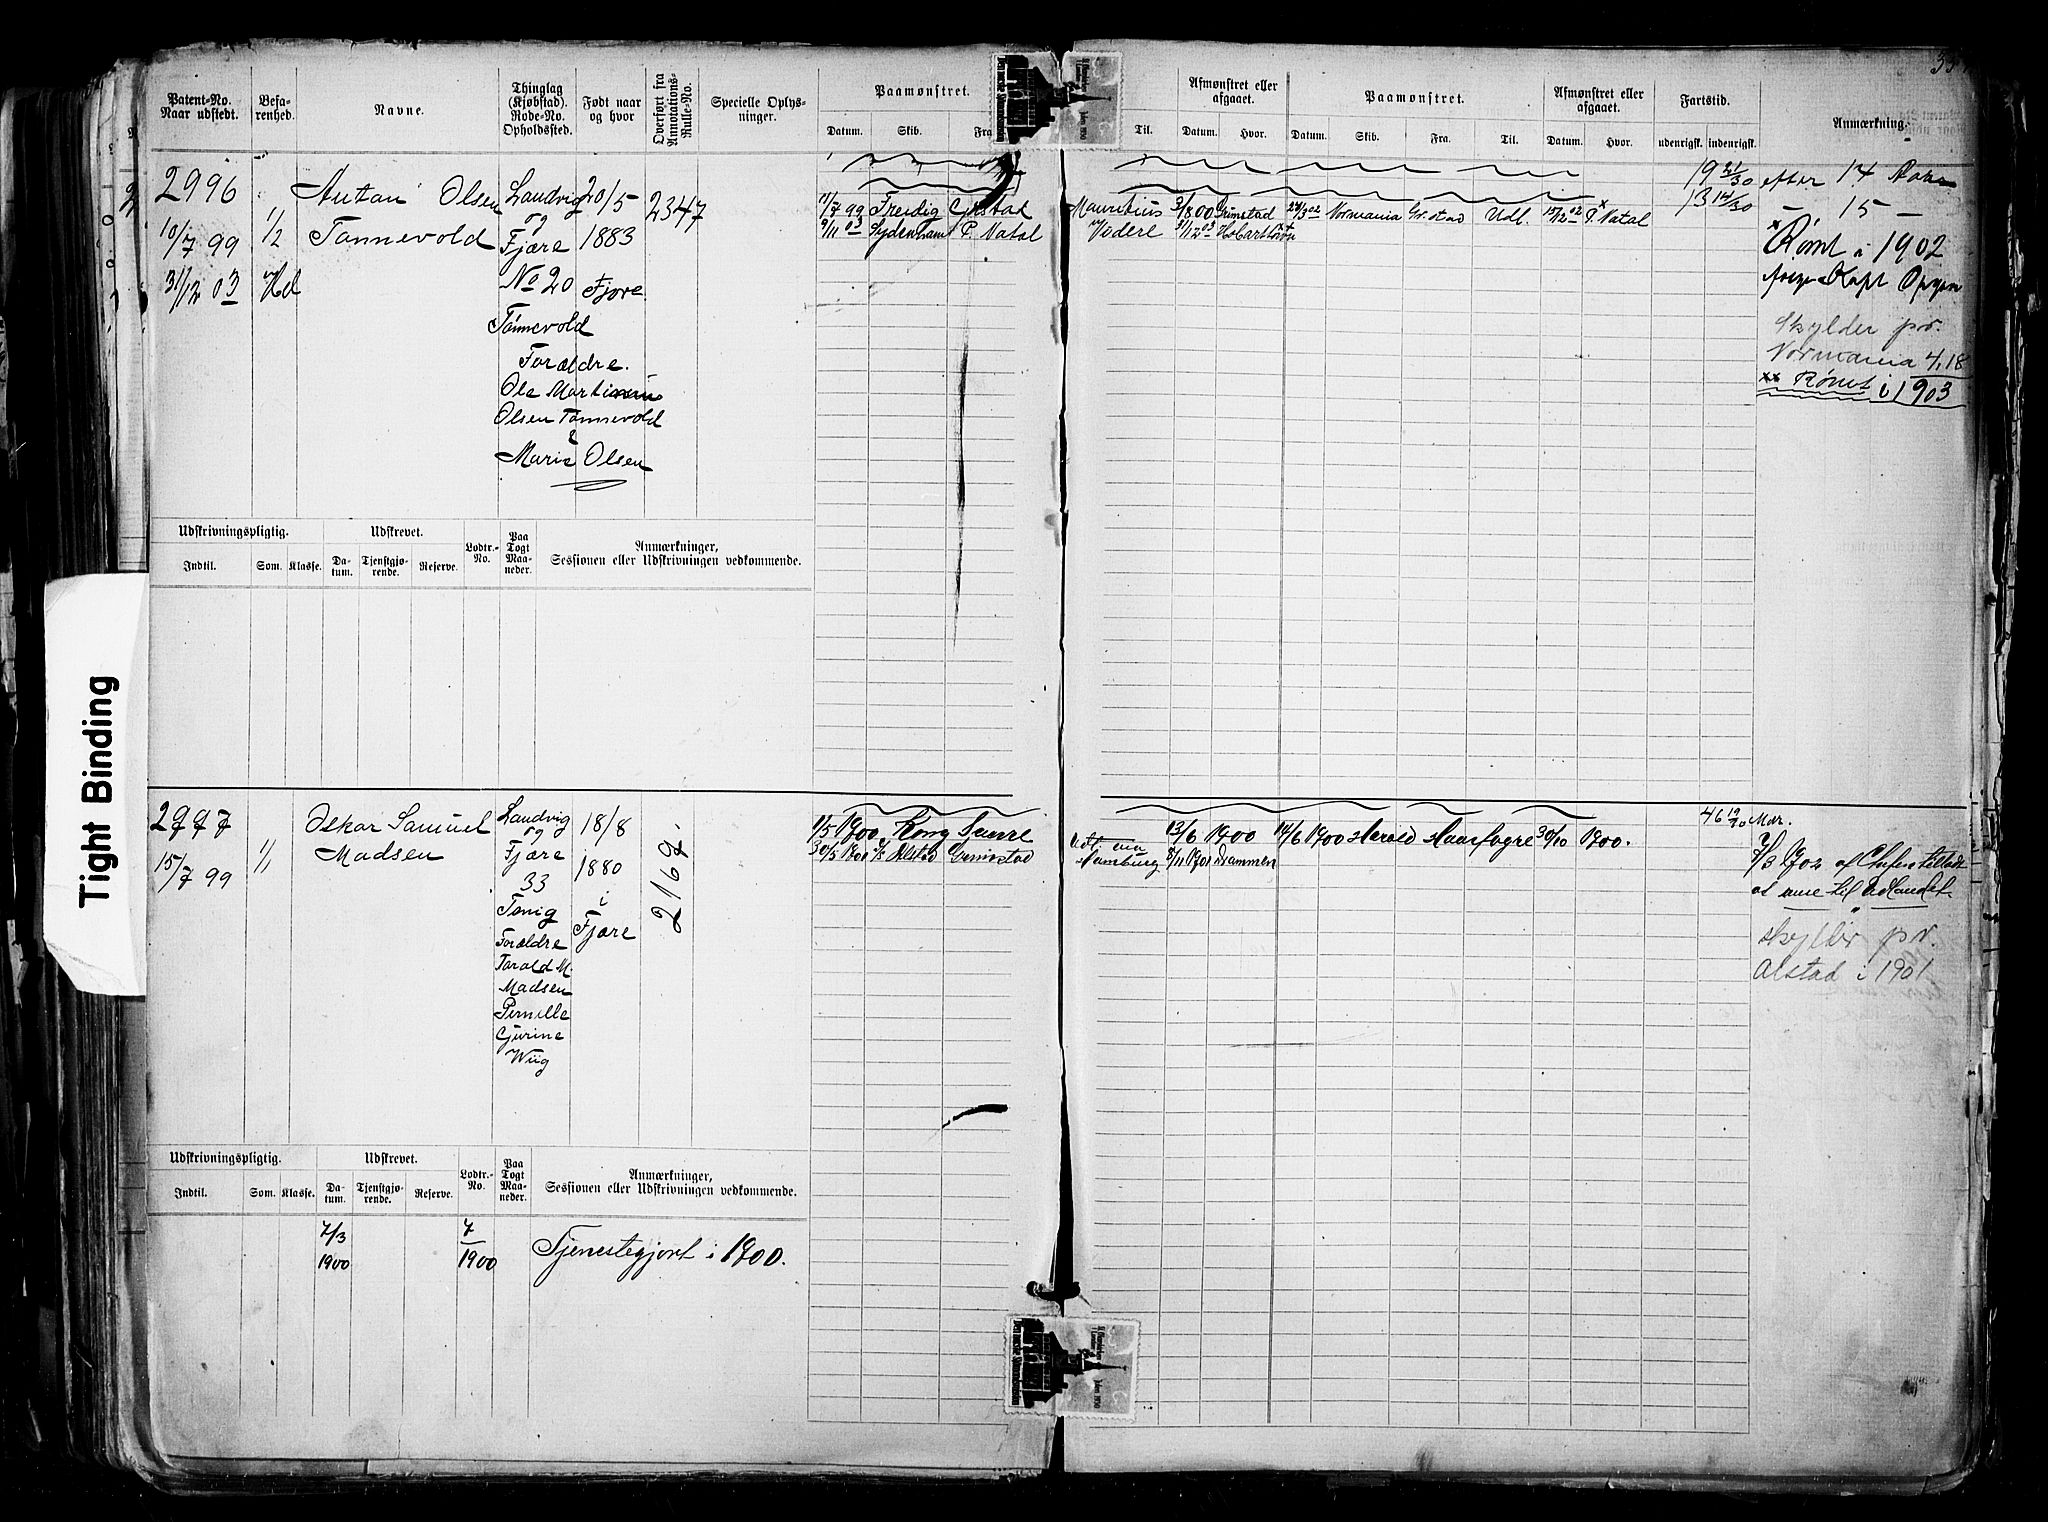 Patent-No. Naar udstedt.
Befarenhed.
Navne.
Thinglag (Kjøbstad). Rode-No. Opholdssted.
Født naar og hvor
Overført fra Annotations-Rulle-No.
Specielle Oplysninger.
Paamønstret.
Datum. Skib. Fra Til.
Afmønstret eller afgaaet.
Datum. Hvor.
Paamønstret.
Datum. Skib. Fra. Til.
Afmønstret eller afgaaet.
Datum. Hvor.
Fartstid.
udenrigsk. indenrigsk.
Anmærkning.
2996
10/7 99
31/12 03
1/2
Hd
Antan Olsen
Tønnevold
Landvig
og
Fjære
No 20
Tønnevold
Forældre.
Ole Martinius
Olsen Tønnevold
&
Marie Olsen
20/5
1883
Fjøre.
2347
11/7 99 Freidig Grstad Mauritius 3/8 00 Grimstad 24/3 02 Normania Gr.stad Udl. 15/12 02 P. Natal
9/11 03 Sydenham P. Natal 5/12 03 Hobarttown
19 21/30 efter 14 Aar
13 14/30 — 15 —
× Rømt i 1902
Skylder pr.
Normania 4,18
×× Rømt i 1903
Udskrivningspligtig.
Udskrevet.
Indtil. Som. Klasse. Datum. Tjenstgjørende. Reserve.
Lodtr.-No.
Paa Togt Maaneder.
Anmærkninger,
Sessionen eller Udskrivningen vedkommende.
Tight Binding
2997
15/7 99
1/1
Oskar Samuel
Madsen
Landvig
og
Fjære
33
Tønig
Forældre
Tarald M.
Madsen
Pernille
Gurine
Wiig
18/8
1880
i
Fjære
2169.
1/5 1900 Kong Sverre 13/6 1900 14/6 1900 Harald Haarfagre 30/10 1900.
30/5 1901 S/S Alstad Grimstad Hamburg 8/11 1901 Drammen
46 19/30 Mdr.
7/3 1902 af Chefen tilladt
at reise til udlandet.
skylder pr.
Alstad i 1901
Udskrivningspligtig.
Udskrevet.
Indtil. Som. Klasse. Datum. Tjenstgjørende. Reserve.
Lodtr.-No.
Paa Togt Maaneder.
Anmærkninger,
Sessionen eller Udskrivningen vedkommende.
7/3
1900
7
1900
Tjenestegjort i 1900.